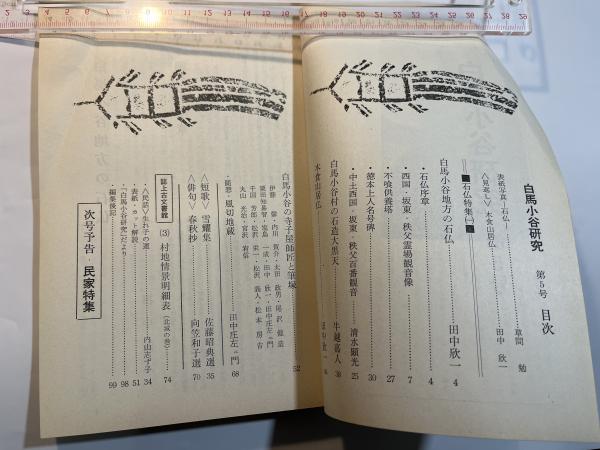 白馬小谷研究 第5号 目次
表紙写真―石仏― 草間 勉
〈見返し〉木食山居仏 田中 欣一
■石仏特集(一)■
白馬小谷地方の石仏 田中欣一 4
・石仏序章 4
・西国・坂東・秩父霊場観音像 7
・不喰供養塔 27
・徳本上人名号碑 30
・中土西国・坂東・秩父百番観音 清水顕光 25
白馬小谷村の石造大黒天 牛越嘉人 38
木食山居仏
白馬小谷の寺子屋師匠と筆塚 52
随想・風切地蔵 田中庄左ェ門 68
〈短歌〉 雪耀集 佐藤昭典選 35
〈俳句〉 春秋抄 向笠和子選 70
誌上古文書館 (3) 村地情景明細表 (北城の巻) 74
・〈民話〉生れ子の運 内山志ず子 34
・表紙・カット解説 51
・「白馬小谷研究」だより 98
・編集後記 99
次号予告―民家特集